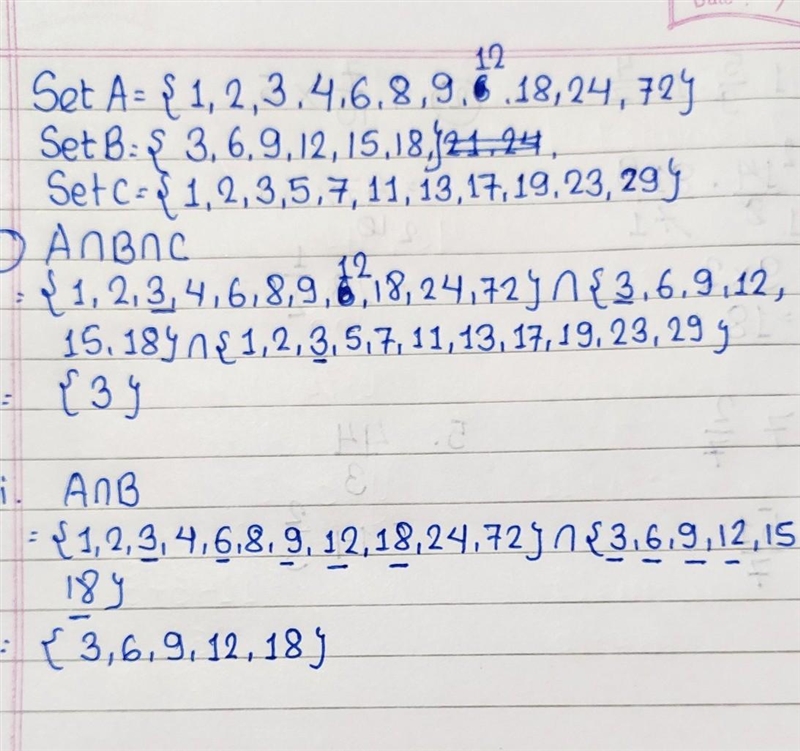 Set A = { 1, 2, 3, 4, 6, 8, 9, 12, 18, 24, 72}
Set B = { 3, 6, 9, 12, 15, 18,} 21, 24,
Set C = { 1, 2, 3, 5, 7, 11, 13, 17, 19, 23, 29}
A∩B∩C
= {1, 2, 3, 4, 6, 8, 9, 12, 18, 24, 72} ∩ {3, 6, 9, 12,
15, 18} ∩ {1, 2, 3, 5, 7, 11, 13, 17, 19, 23, 29}
= {3}
i. A∩B
= {1, 2, 3, 4, 6, 8, 9, 12, 18, 24, 72} ∩ {3, 6, 9, 12, 15
18}
= { 3, 6, 9, 12, 18}